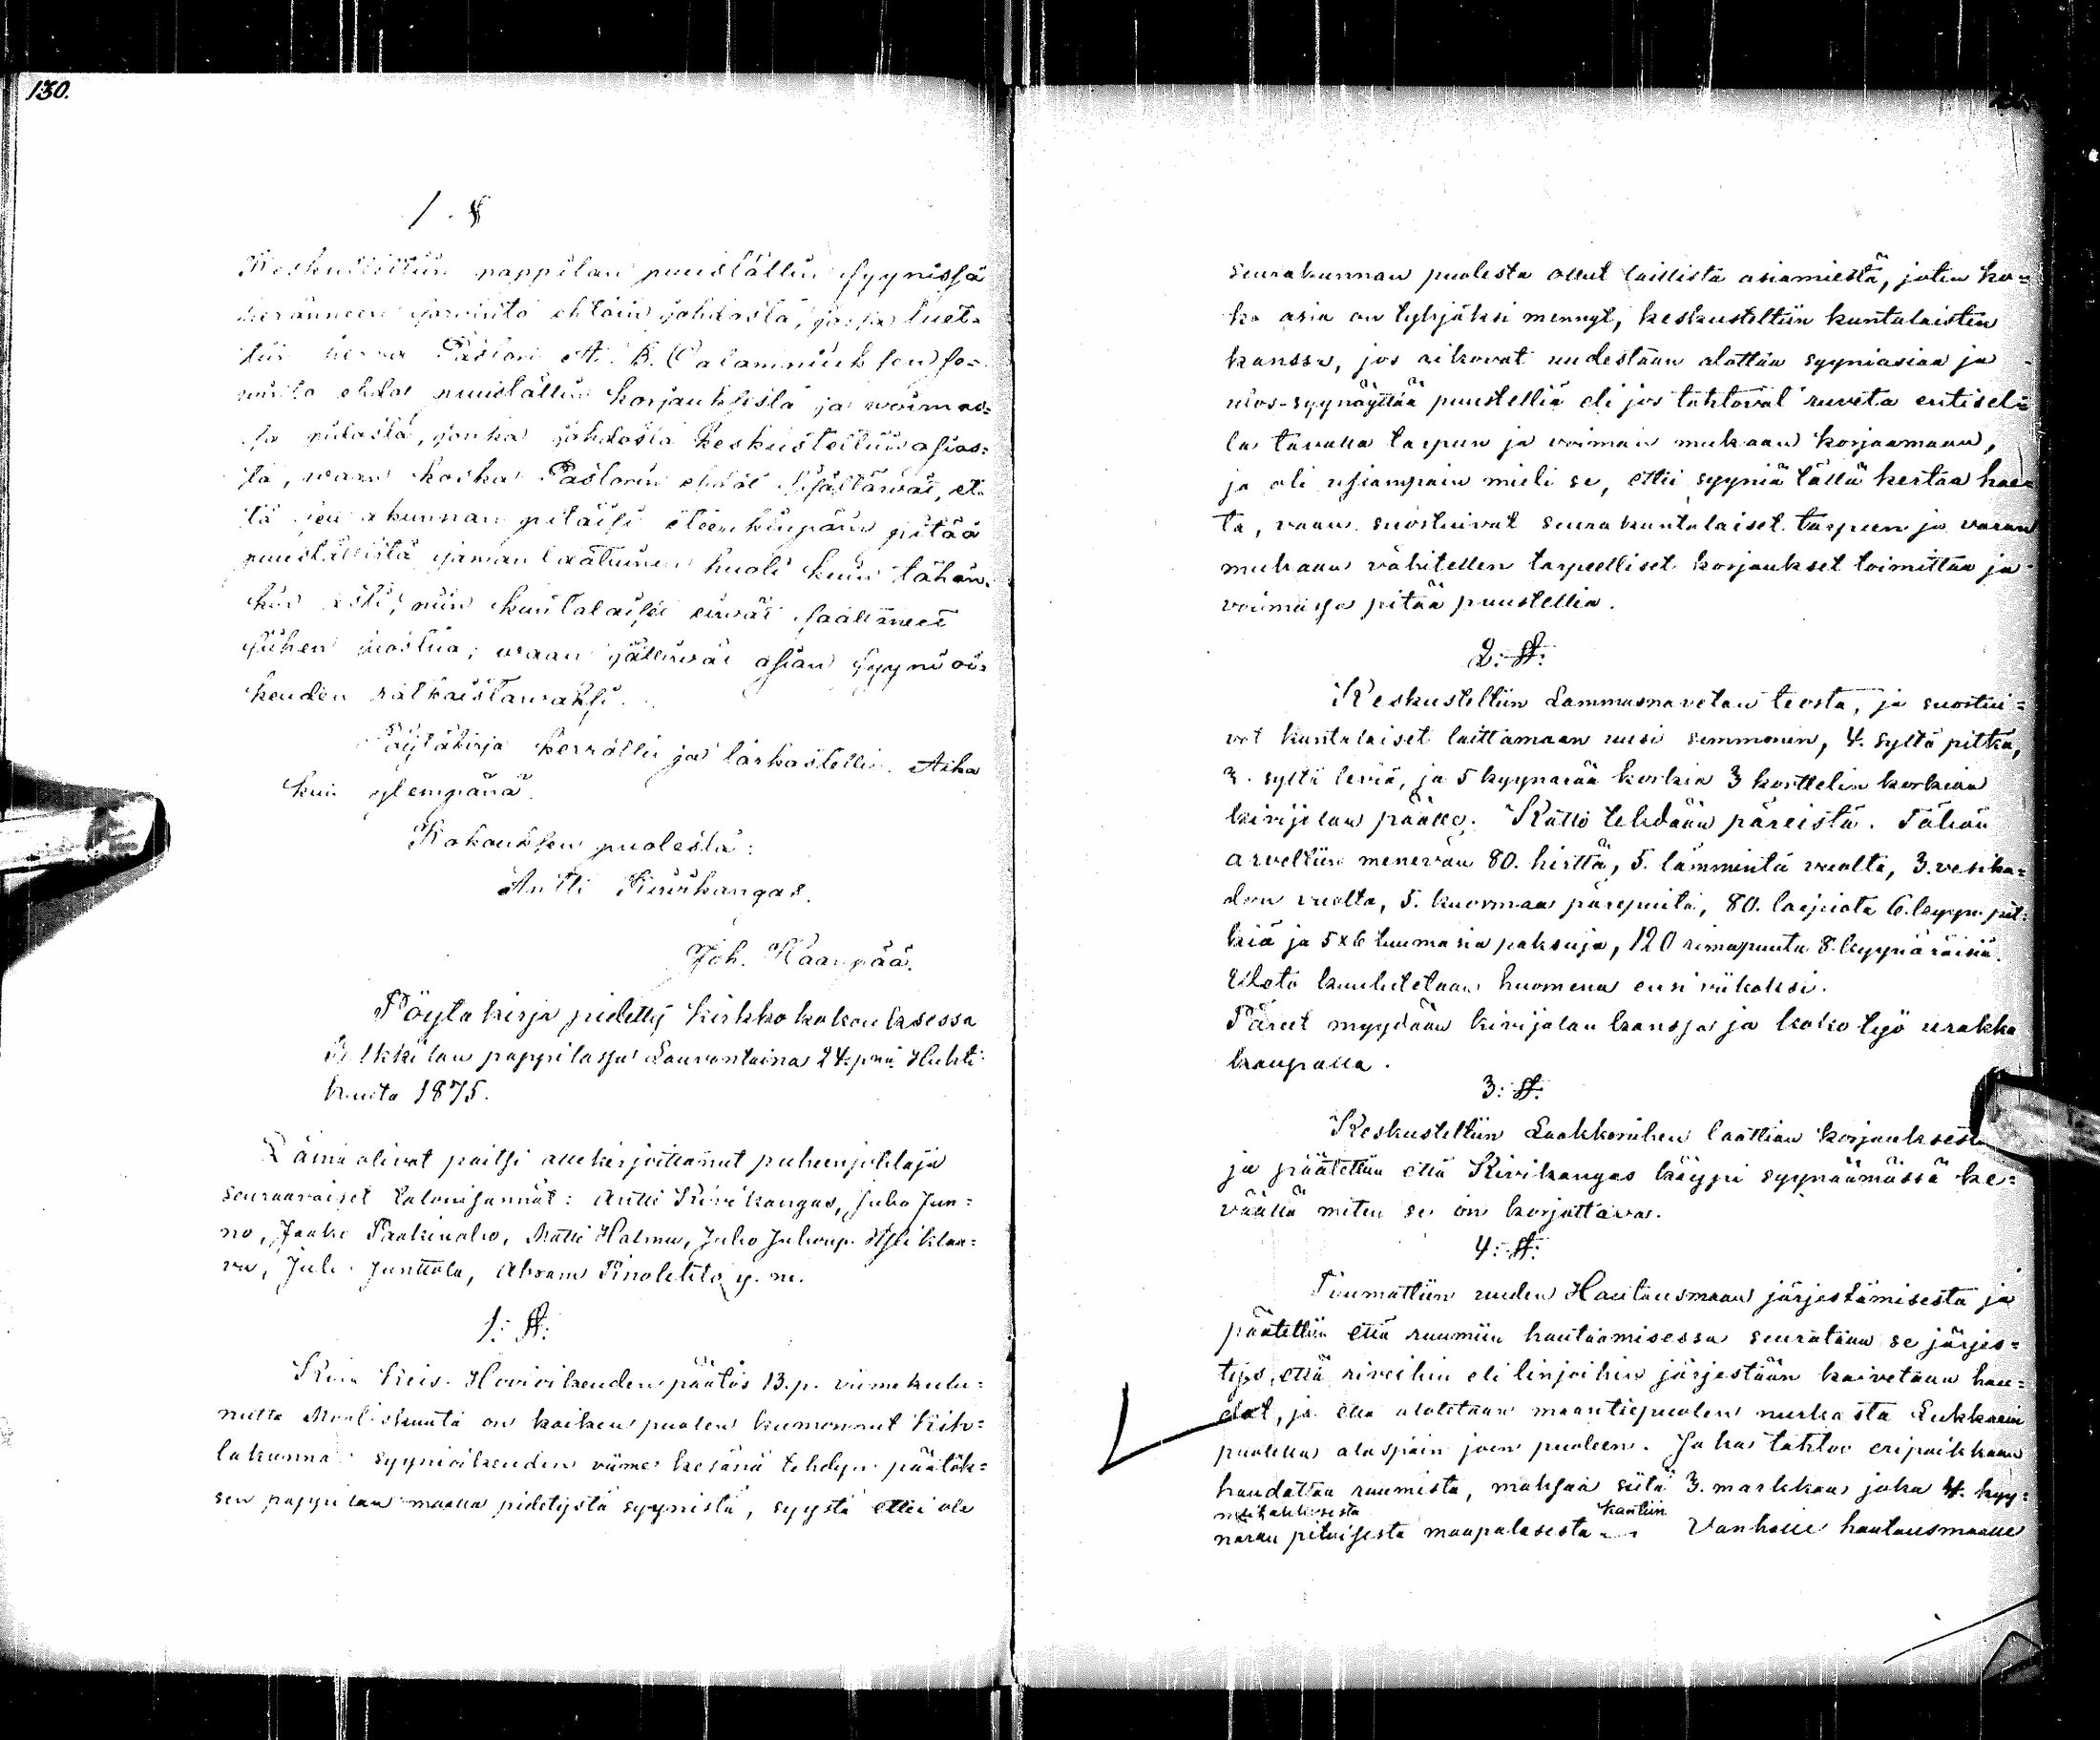 130.
1. §
Keskusteltiin pappilan puuställin syynissä
ehtoin johdosta, jossa luet-
tiin herra Pastori A. B. Calamniuksen so-
ehdot puuställin korjauksista ja woimas-
sa pidosta, jonka johdosta keskusteltiin asias-
ta, waan koska Pastorin ehdot sisältäwät, et-
tä seurakunnan pitäisi eteenkinpäin pitää
puuställistä saman huoli kuin tähän-
kin asti, niin kuntalaiset eiwät
siihen suostua; waan jättiwät asian syyni oi-
keuden ratkaistawaksi.
Pöytäkirja kerrottu ja tarkastettu. Aika
kuin ylempänä.
Kokouksen puolesta:
Antti Kiwikangas.
Joh. Kaanpää.
Pöytäkirja pidetty kirkkokokouksessa
Pulkkilan pappilassa Lauvantaina 24. pnä Huhti-
kuuta 1875.
Läsnä olivat paitsi allekirjoittanut puheenjohtaja
seuraavaiset talonisännät: Antti Kivikangas, Juho Jun=
no, Jaako Paakinaho, Matti Halmu, Juho Juhonp.
Juho Junttola, Abram Pinolehto y. m.
1: §:
Kuin Keis. Hovioikeuden päätös 13. p. viimekulu=
nutta Maaliskuuta on kaiken puolen kumonnut Kih=
lakunna syynioikeuden viime kesänä tehdyn päätök=
sen pappilan maalla pidetystä syynistä, syystä ettei ole
seurakunnan puolesta ollut laillista asiamiestä, joten ko=
ko asia on tyhjäksi mennyt, keskusteltiin kuntalaisten
kanssa, jos aikovat uudestaan alottaa syyniasiaa ja
ulos-syynäyttää puustelliä eli jos tahtovat ruveta entisel=
la tavalla tarpeen ja voiman mukaan korjaamaan,
ja oli usiampain mieli se, ettei syyniä tällä kertaa hae=
ta, vaan suostuivat seurakuntalaiset tarpeen ja varan
mukaan vähitellen tarpeelliset korjaukset toimittaa ja
voimassa pitää puustellia.
2: §:
Keskusteltiin Lammasnavetan teosta, ja suostui=
vat kuntalaiset laittamaan uusi semmonen, 4. syltä pitkä,
3. syltä leviä, ja 5 kyynärää korkia 3 korttelin korkian
kivijalan päälle. Katto tehdään päreistä. Tähän
arveltiin menevän 80. hirttä, 5. lämmintä vuolta, 3. vesika=
don vuolta, 5. kuormaa pärepuita, 80. 6. kyyn. pit=
kiä ja 5x6 tuumasia paksuja, 120 rimapuuta 8. kyynäräisiä.
Uloto kuulutetaan huomena ensi viikoksi.
Päreet myydään kivijalan kanssa ja koko työ urakka
kaupalla.
3: §:
Keskusteltiin Luokkorihen laattian korjauksesta
ja päätettiin että Kivikangas käypi syynäämässä ke=
väällä miten se on korjattava.
4: §:
Tuumattiin uuden Hautausmaan järjestämisestä ja
päätettiin että ruumiin hautaamisessa seurataan se järjes=
tys, että riveihin eli linjoihin järjestään kaivetaan hau=
dat, ja että alotetaan maantiepuolen nurkasta Lukkarin
puolelta alaspäin joen puoleen. Joka tahtoo eripaikkaan
haudattaa ruumista, maksaa siitä 3. markkaa joka 4. kyy=
neliskulmaisesta kantiin
närän pituisesta maapalasesta Vanhalle hautausmaalle